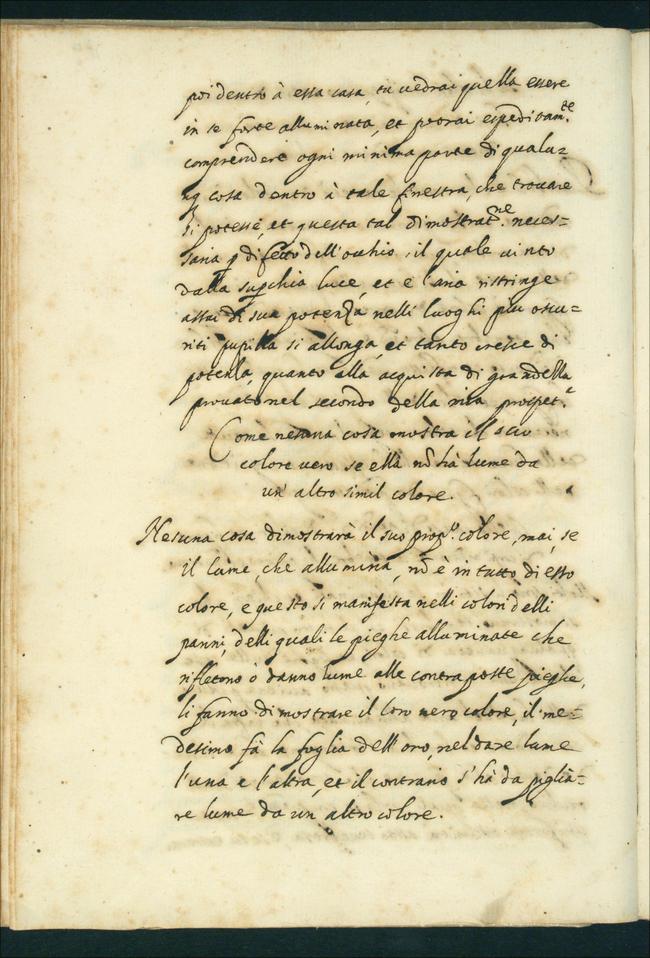 poi dentro à essa casa, tu uedrai quella essere
in se forte alluminata, et potrai espeditam.te
comprendere ogni minima parte di qualu=
nq cosa dentro à tale finestra, che trouare
si potesse, et questa tal dimostrat.ne neces=
saria p difetto dell'occhio, il quale uinto
dalla supchia luce, et e l'aria ristringe
assai di sua potenza nelli luoghi piu oscu=
riti pupilla si allonga, et tanto cresce di
potenza, quanto ella acquista di grandezza
prouato nel secondo della mia prospet.a
Come nesuna cosa mostra il suo
colore uero se ella nō hà lume da
un' altro simil colore.
Nesuna cosa dimostrarà il suo prop.o colore, mai, se
il lume, che allumina, nō è in tutto di esso
colore, e questo si manifesta nelli colori delli
panni, delli quali le pieghe alluminate che
rifletono ò danno lume alle contraposte pieghe,
li fanno dimostrare il loro uero colore, il me=
desimo fà la foglia dell'oro, nel dare lume
l'una e l'altra, et il contrario s'hà da piglia=
re lume da un altro colore.